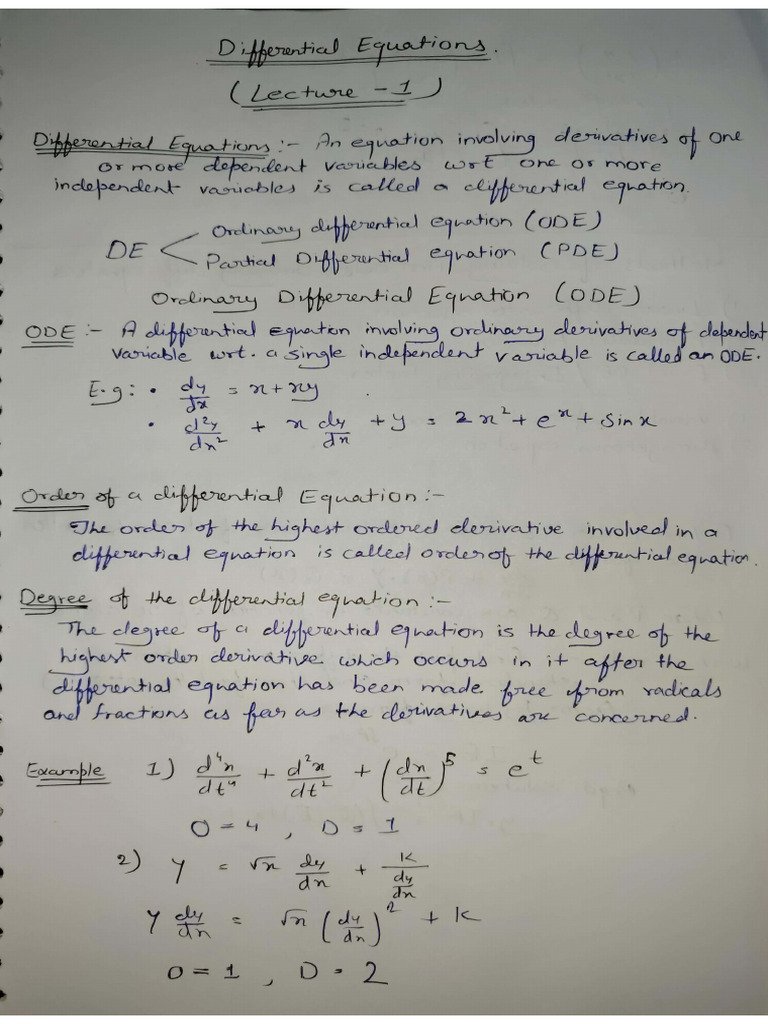 Differential Equations.
(Lecture - 1)
Differential Equations :- An equation involving derivatives of one
or more dependent variables wrt one or more
independent variables is called a differential equation.
DE < Ordinary differential equation (ODE)
Partial Differential equation (PDE)
Ordinary Differential Equation (ODE)
ODE :- A differential equation involving ordinary derivatives of dependent
variable wrt. a single independent variable is called an ODE.
E.g : • dy/dx = x + xy
• d²y/dx² + x dy/dx + y = 2x² + eˣ + sin x
Order of a differential Equation :-
The order of the highest ordered derivative involved in a
differential equation is called order of the differential equation.
Degree of the differential equation :-
The degree of a differential equation is the degree of the
highest order derivative which occurs in it after the
differential equation has been made free from radicals
and fractions as far as the derivatives are concerned.
Example 1) d⁴x/dt⁴ + d²x/dt² + (dx/dt)⁵ = eᵗ
O = 4 , D = 1
2) y = √x dy/dx + k/(dy/dx)
y dy/dx = √x (dy/dx)² + k
O = 1 , D = 2